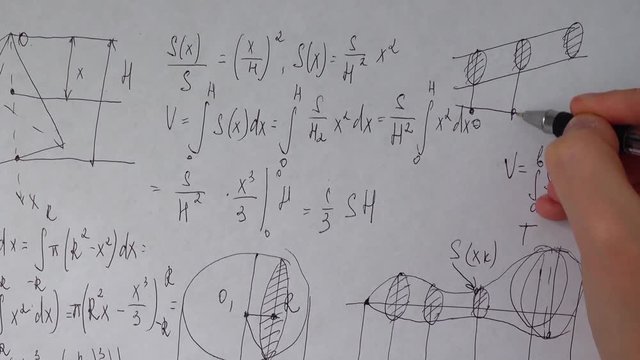 O
x
H
S(x)/S = (x/H)², S(x) = S/H² x²
V = ∫₀ᴴ S(x)dx = ∫₀ᴴ S/H₂ x²dx = S/H² ∫₀ᴴ x²dx
O
= S/H² · x³/3 |₀ᴴ = 1/3 SH
V =
x
dx = ∫ π(R²-x²)dx =
-R -R
x²dx) = π(R²x - x³/3) =
R
-R
O₁
R
S(xk)
T